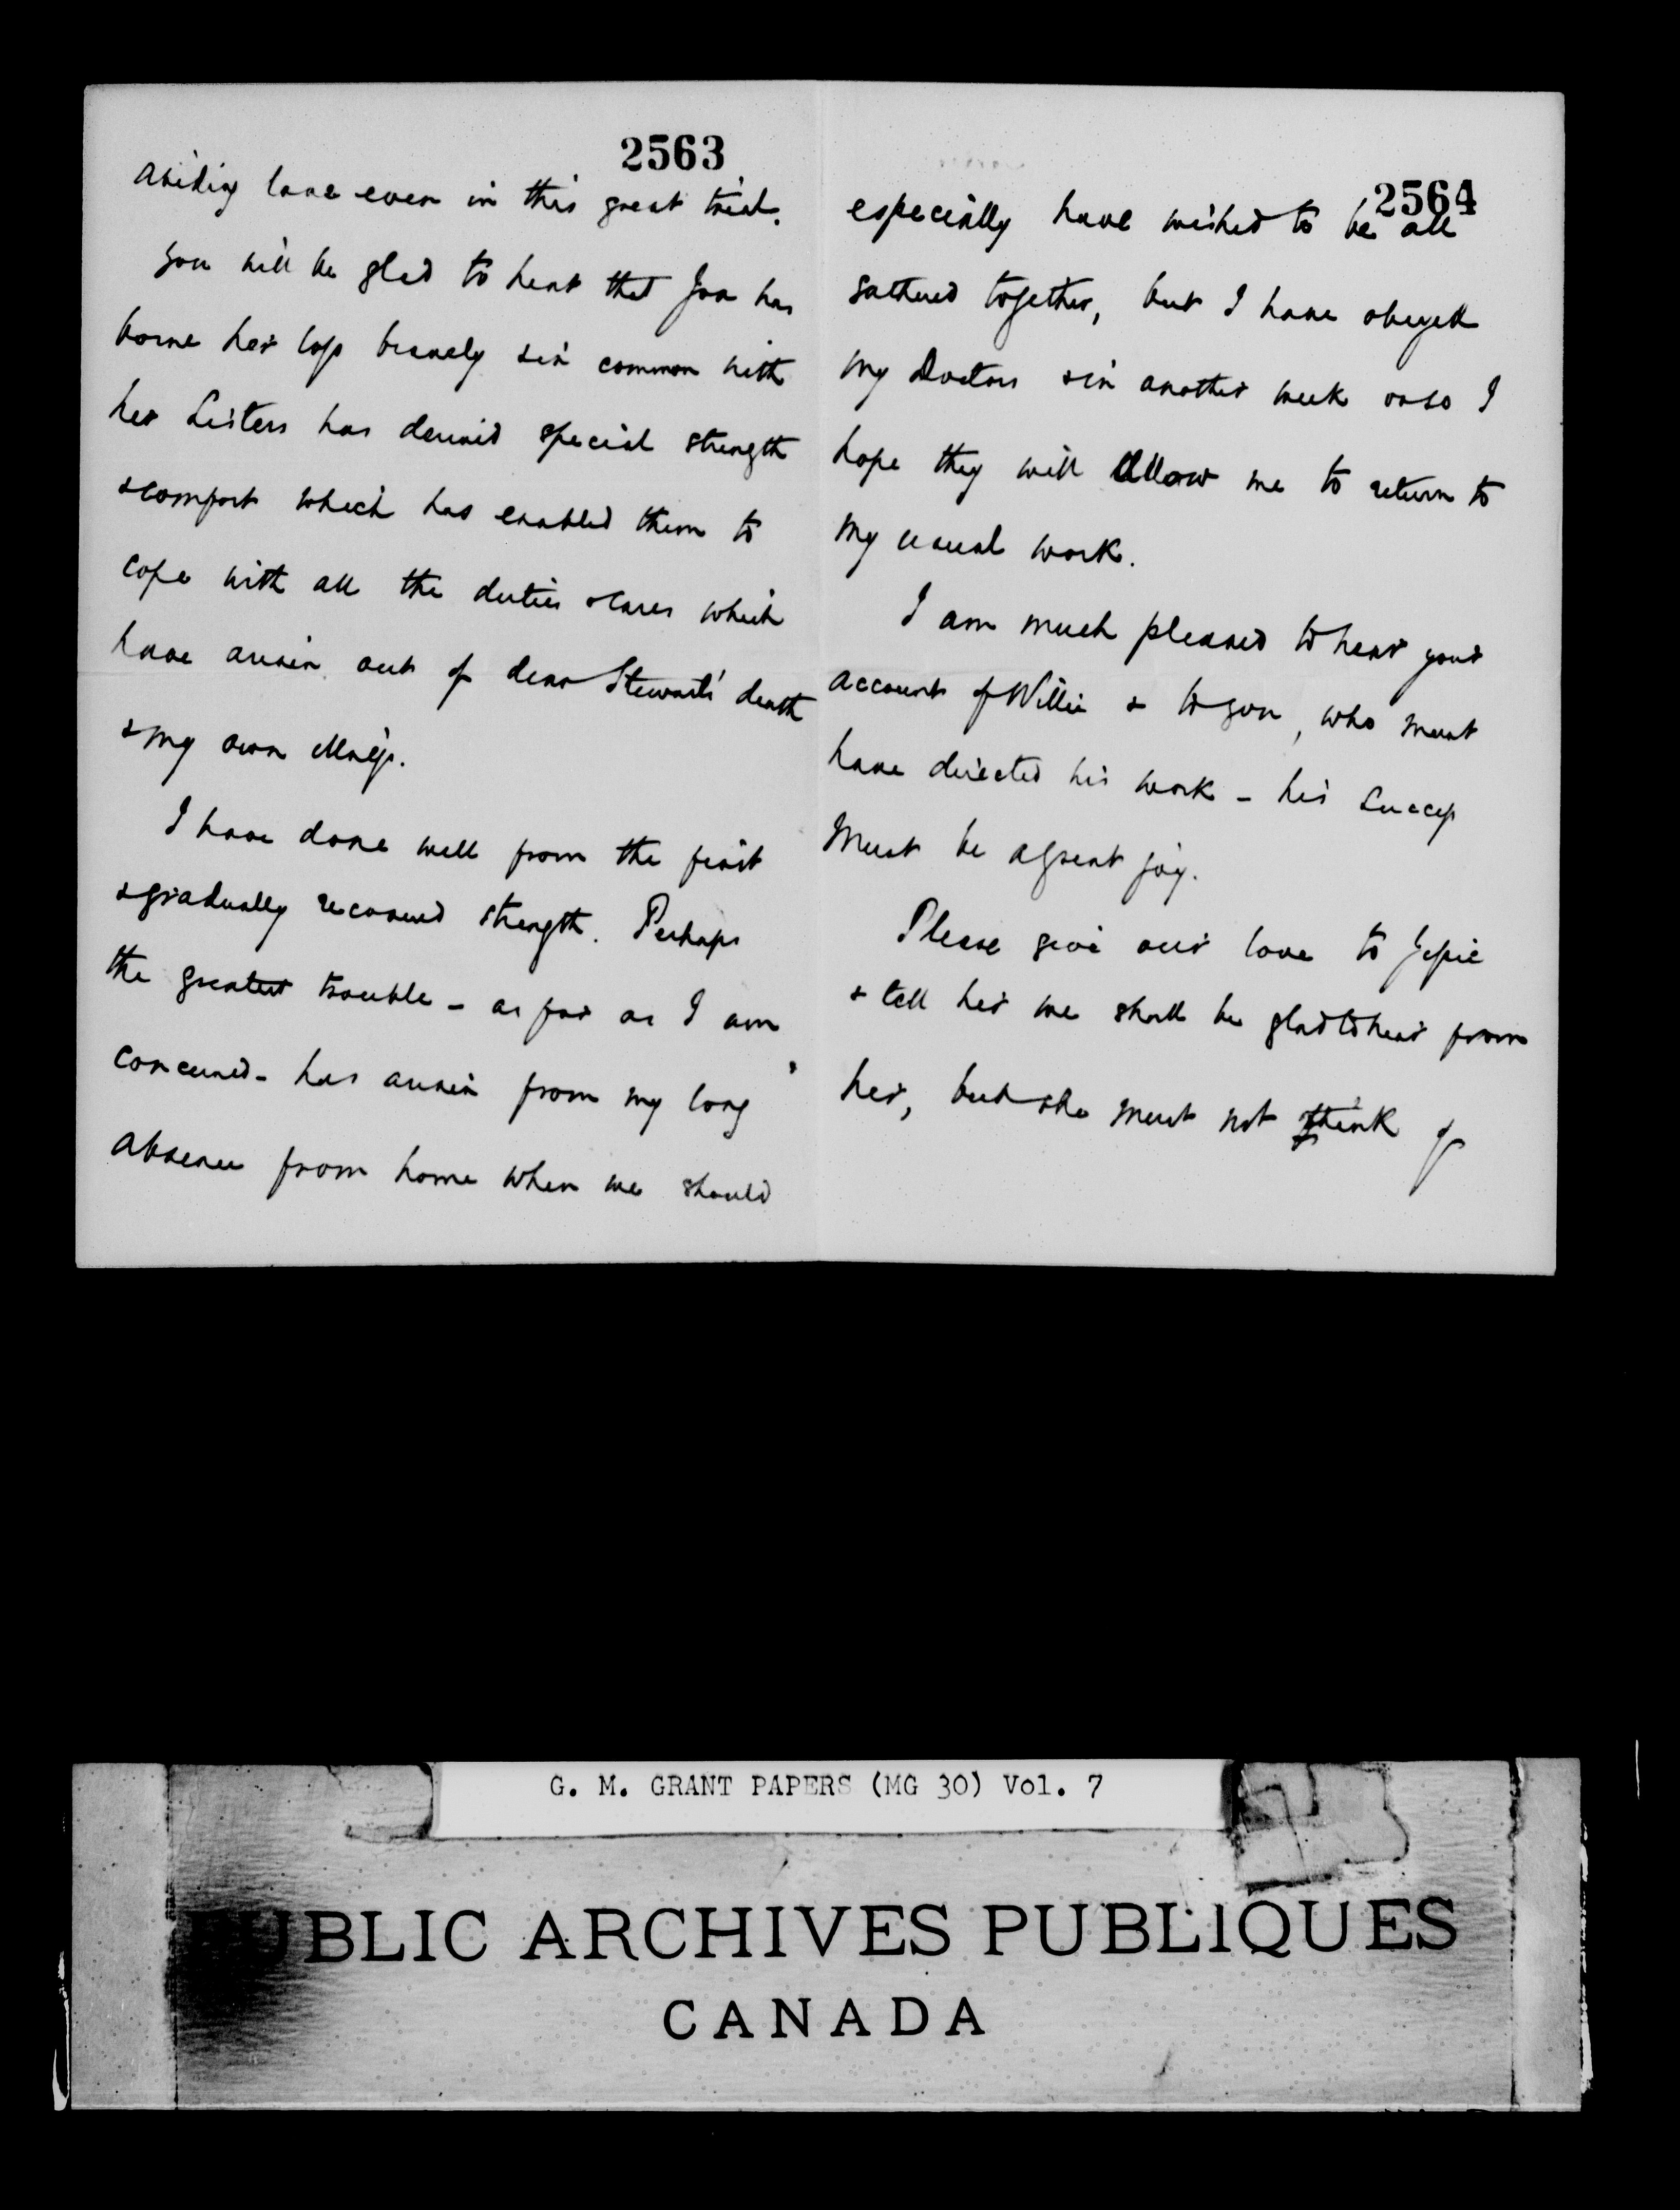 2563
abiding love even in this great trial.
You will be glad to hear that Joa has
borne her loss bravely & in common with
her Sisters has derived special strength
& comfort which has enabled them to
cope with all the duties & cares which
have arisen out of dear Stewart's death
& my own
I have done well from the first
& gradually recovered strength. Perhaps
the greatest trouble - as far as I am
concerned - has arisen from my long
absence from home when we should
2564
especially have wished to be all
gathered together, but I have obeyed
my Doctors & in another week or so I
hope they will allow me to return to
my usual work.
I am much pleased to hear your
account of Willie & to you, who must
have directed his work - his success
must be a great joy.
Please give our love to Jessie
& tell her we shall be glad to hear from
her, but she must not think of
G. M. GRANT PAPERS (MG 30) Vol. 7
PUBLIC ARCHIVES PUBLIQUES
CANADA